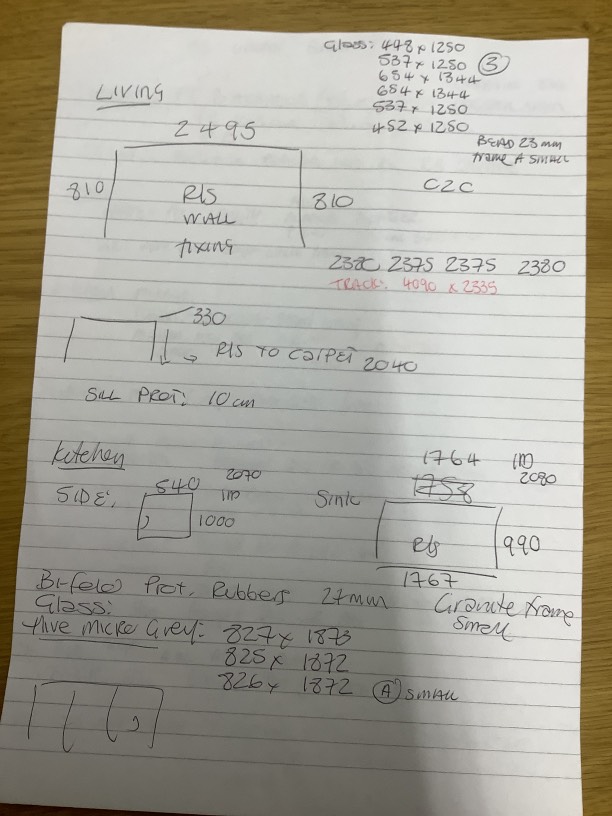 Glass: 448 x 1250
537 x 1250 3
654 x 1344
654 x 1344
537 x 1250
452 x 1250
BEAD 23 mm
frame A SMALL
LIVING
2495
810
Rls
WALL
fixing
810
C2C
2380 2375 2375 2380
TRACK: 4090 x 2335
330
Rls TO CARPET 2040
SILL PROT: 10 cm
Kitchen
SIDE:
540
2070
1000
Sink
1764
2080
1758
Rls
990
1767
Bi-fold Prot. Rubbers 27mm
Granite frame
small
Glass:
Hive micro Grey: 827 x 1873
825 x 1872
826 x 1872 A SMALL